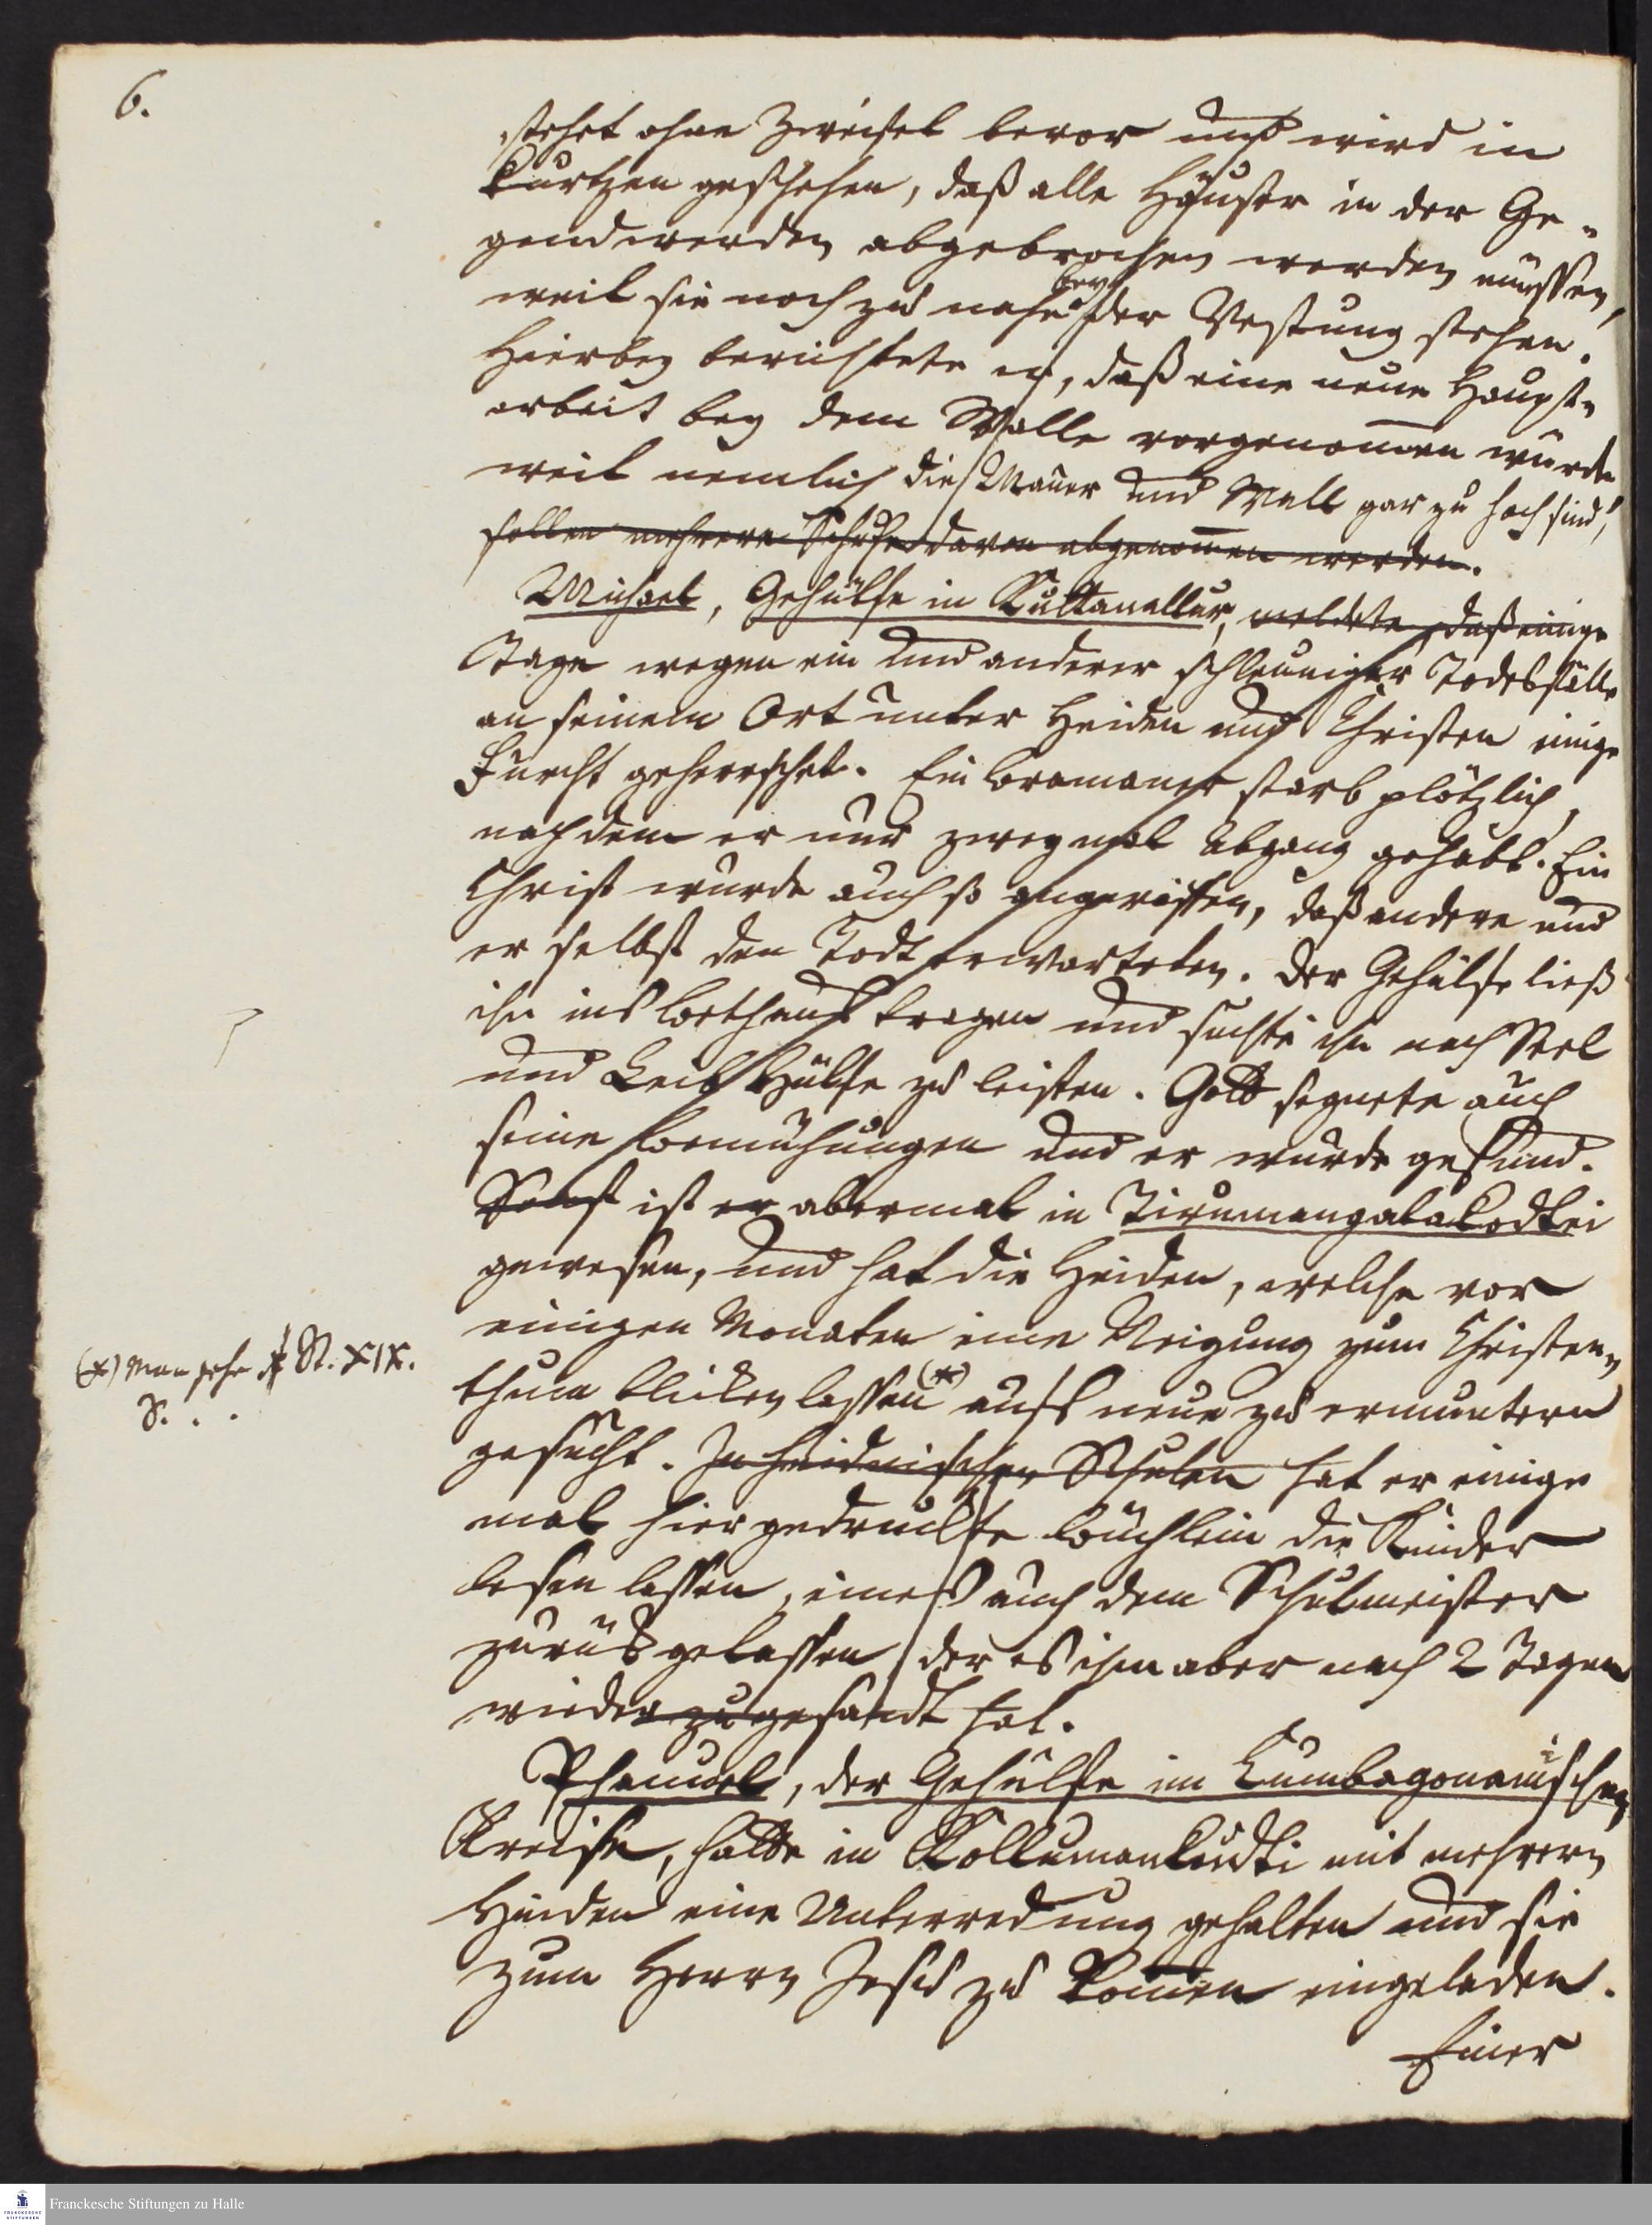 6.
stehet ohne Zweifel bevor und wird in
kurtzen geschehen, daß alle Häuser in der Ge-
gend werden abgebrochen werden müssen,
weil sie noch zu nahe bey der Vestung stehen.
Hierbey berichtete er, daß eine neue Haupt-
arbeit bey dem Walle vorgenommen würde
weil nemlich die Mauer und Wall gar zu hoch sind,
sollen mehrere Schuhe davon abgenommen werden.
Michael, Gehülfe in Kuttanallur, meldete, daß einige
Tage wegen ein und anderer schleuniger Todesfälle
an seinem Ort unter Heiden und Christen einige
Furcht geherrschet. Ein Bramaner starb plötzlich,
nachdem er nur zweymal Abgang gehabt. Ein
Christ wurde auch so angegriffen, daß andere und
er selbst den Todt erwarteten. Der Gehülfe ließ
ihn ins Bethaus tragen und suchte ihn nach Seel
und Leib Hülfe zu leisten. Gott segnete auch
seine Bemühungen und er wurde gesund.
Sonst ist er abermal in Tirumangalakodtei
gewesen, und hat die Heiden, welche vor
einigen Monaten eine Neigung zum Christen-
thum blicken lassen (*) aufs neue zu ermuntern
(*) Man sehe St. XIX.
S. . .
gesucht. In heidnischen Schulen hat er einige
mal hier gedruckte Büchlein die Kinder
lesen lassen, eines auch dem Schulmeister
zurük gelassen, der es ihm aber nach 2 Tagen
wieder zugesandt hat.
Phanuel, der Gehülfe im Cumbagonamischen
Kreise, hatte in Kollumankudti mit mehrern
Heiden eine Unterredung gehalten und sie
zum Herrn Jesu zu kommen eingeladen.
Einer
Franckesche Stiftungen zu Halle
FRANCKESCHE
STIFTUNGEN